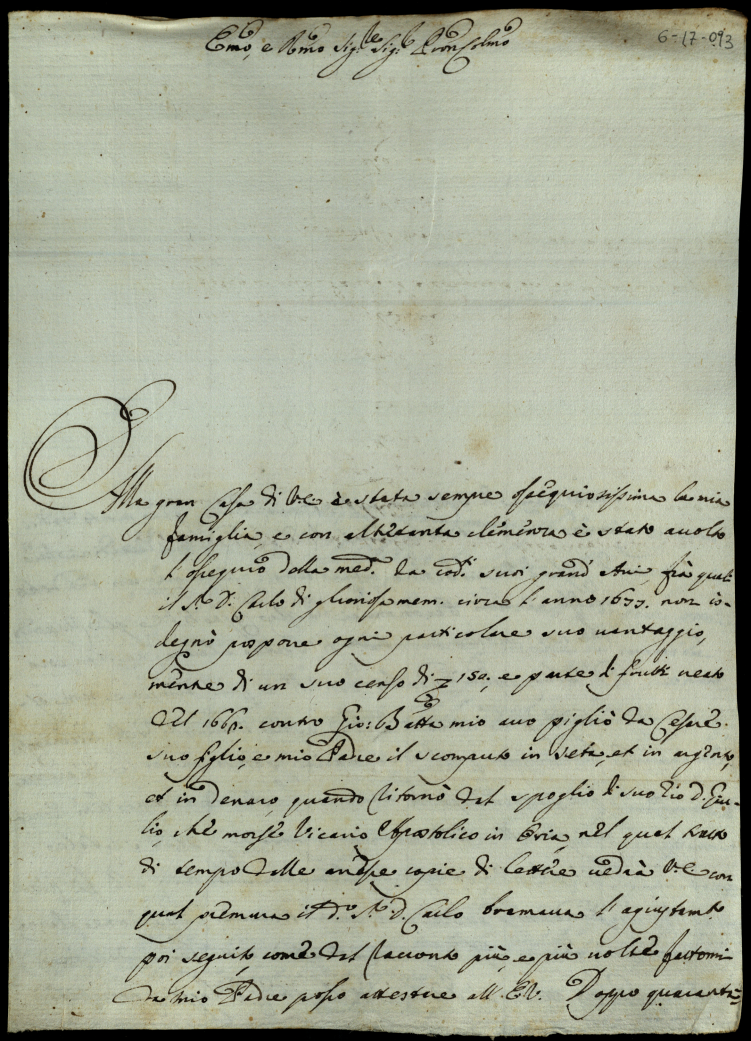 6-17-093
Emo, e Rmo Sig.re Sig.r Pron Colmo
Alla gran Casa di V.E. è stata sempre ossequiosissima la mia
famiglia, e con altretanta clemenza è stato accolto
l'ossequio della med.a da cod.i suoi grand' Avi, frà quali
il S.r D. Carlo di gloriosa mem. circa l'anno 1677. non is-
degnò posponere ogni particolare suo vantaggio,
mentre di un suo censo di 150; e parte di frutti
del contro Gio: Batta mio avo pigliò da Cesare
suo figlio, e mio Padre il scomputo in seta, et in argento,
et in denaro, quando ritornò dal spoglio di suo Zio D. Giu-
lio, che morse Vicario Apostolico in Oria, nel qual tratto
di tempo dalle annesse copie di lettere vedrà V.E. con
qual premura il d.o S.r D. Carlo bramava l'agiustam.to
poi seguito, come dal racconto più, e più volte fattomi
da mio Padre posso attestare all' E.V. Doppo quaranta